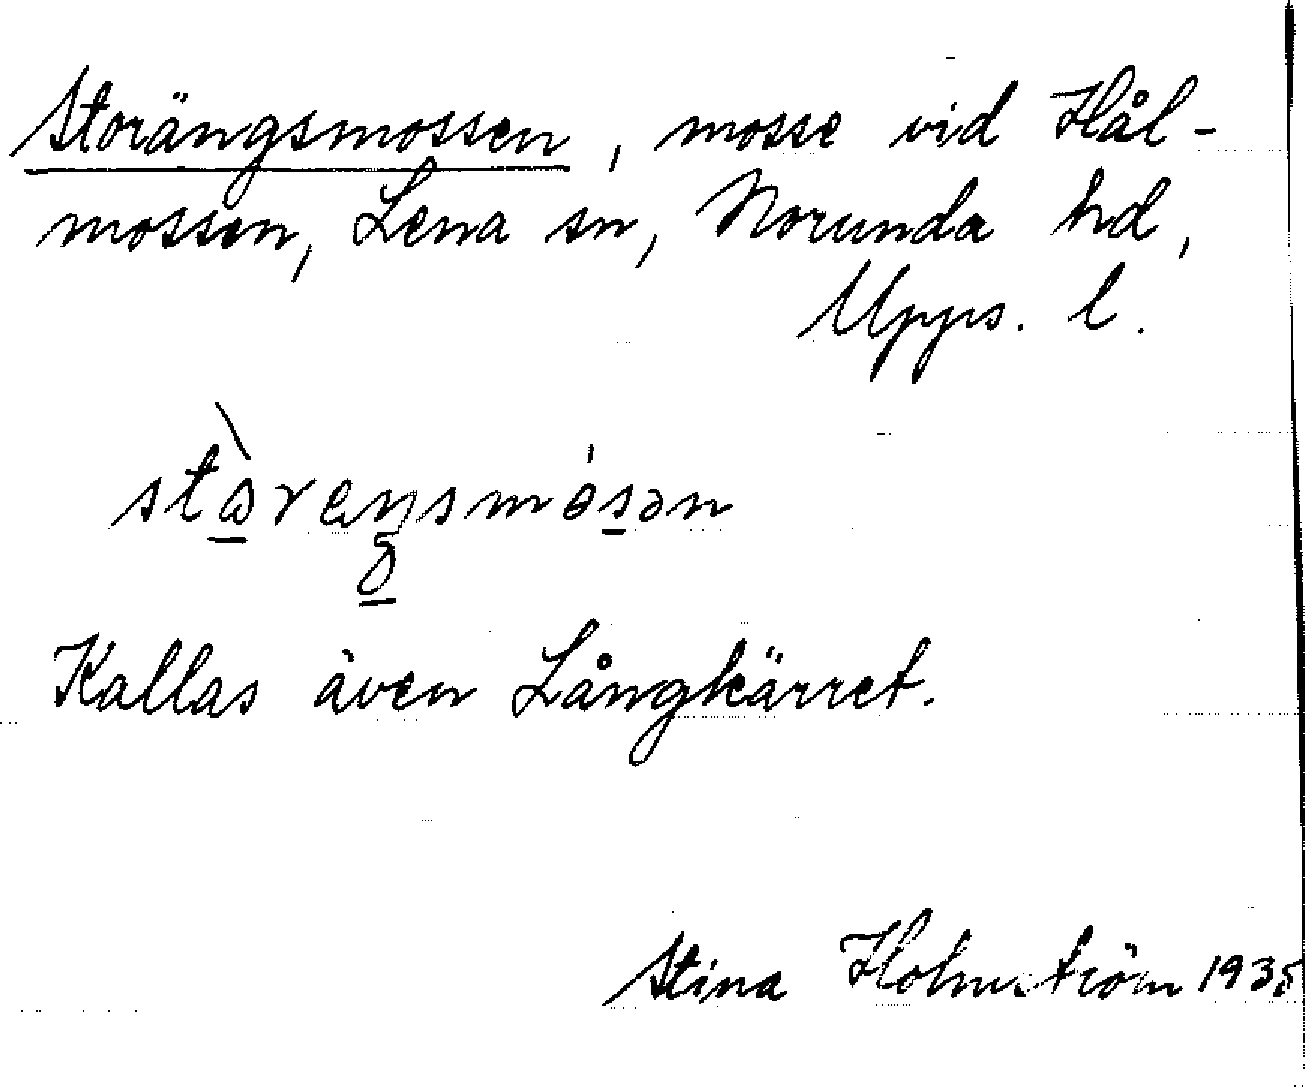 Storängsmossen, mosse vid Hål-
mossen, Lena sn, Norunda hd,
Upps. l.
Kallas även Långkärret.
Stina Holmström 1935